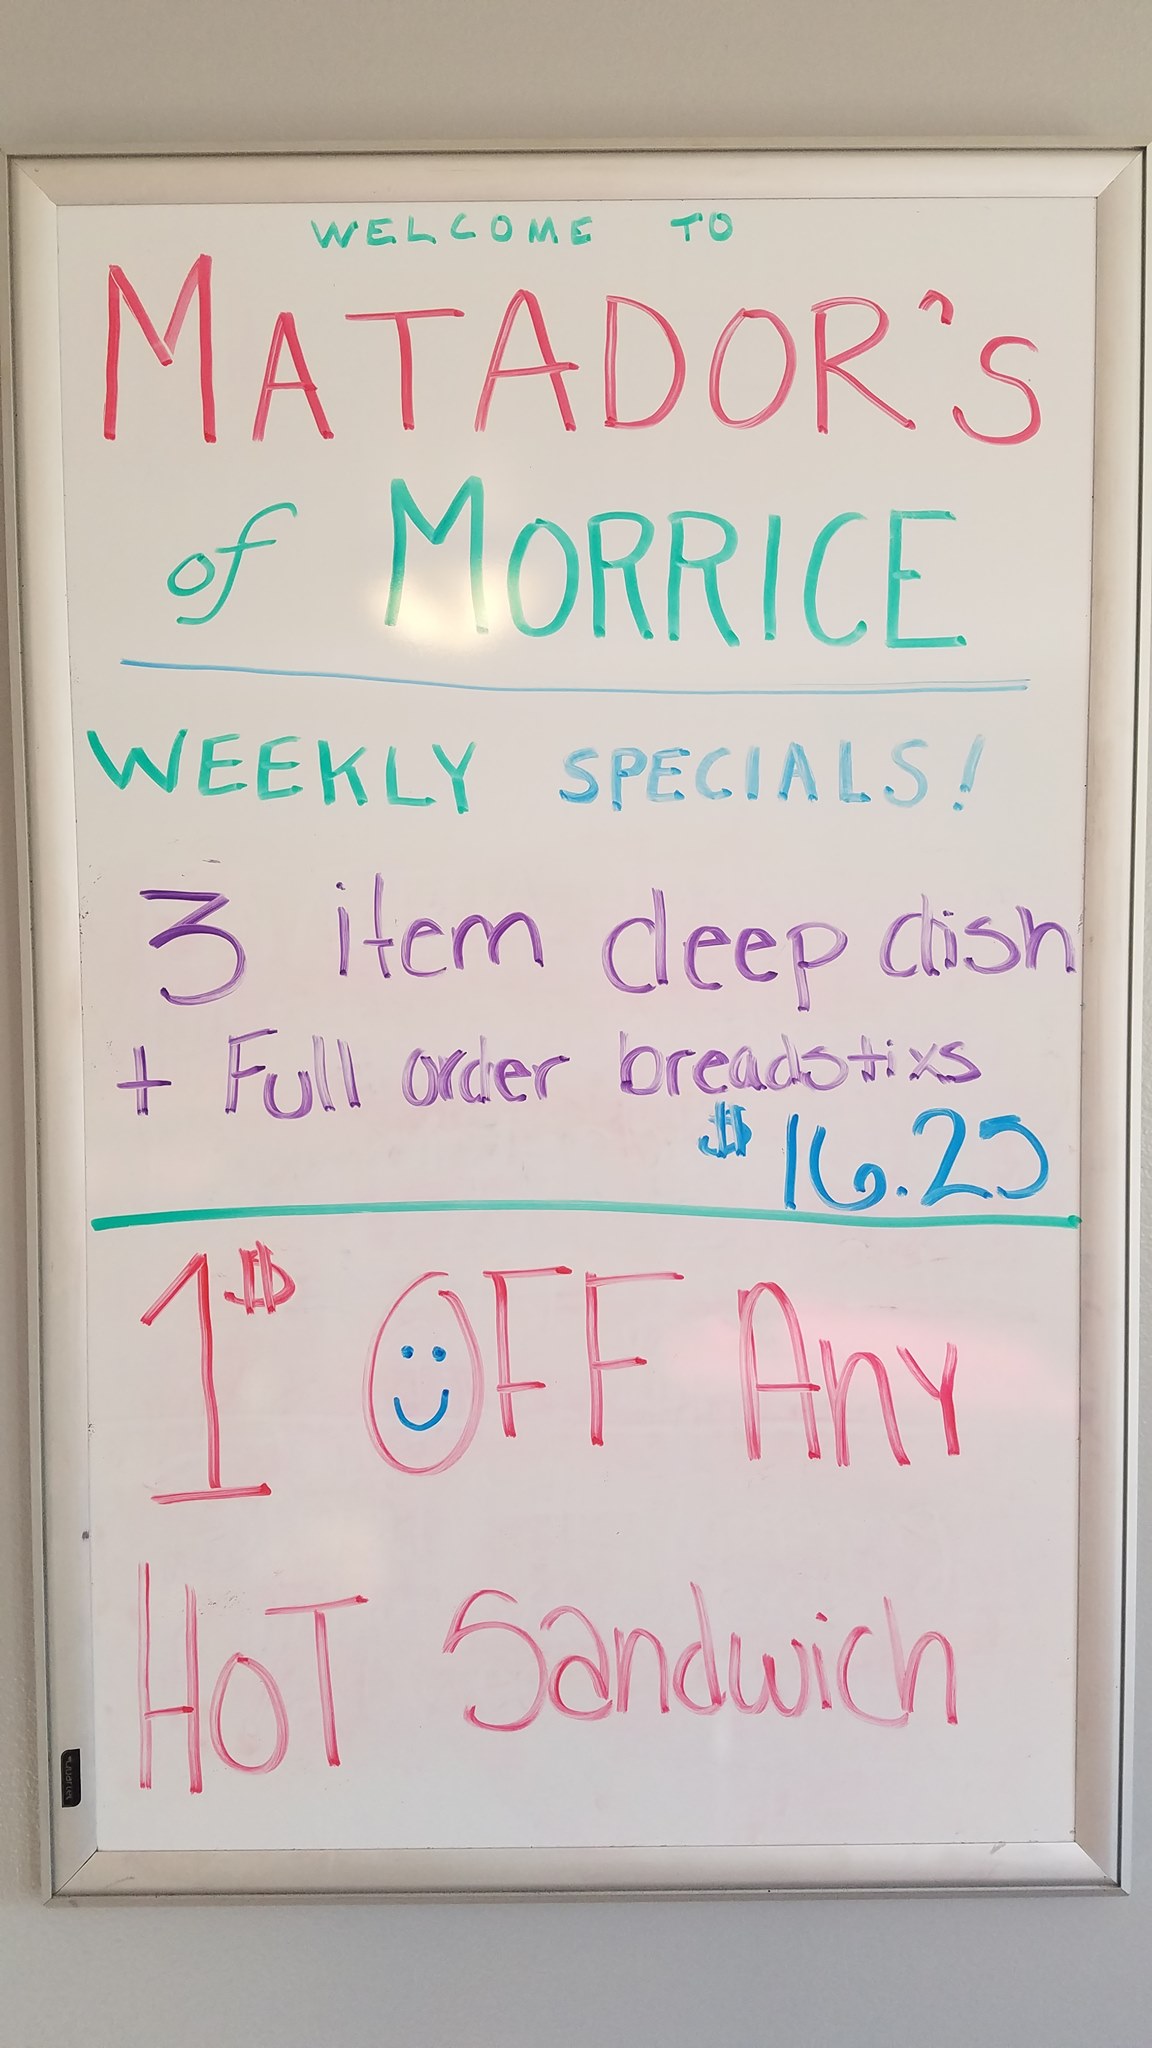 WELCOME TO
MATADOR's
of MORRICE
WEEKLY SPECIALS!
3 item deep dish
+ Full order breadstixs
$16.25
1$ OFF Any
HOT Sandwich